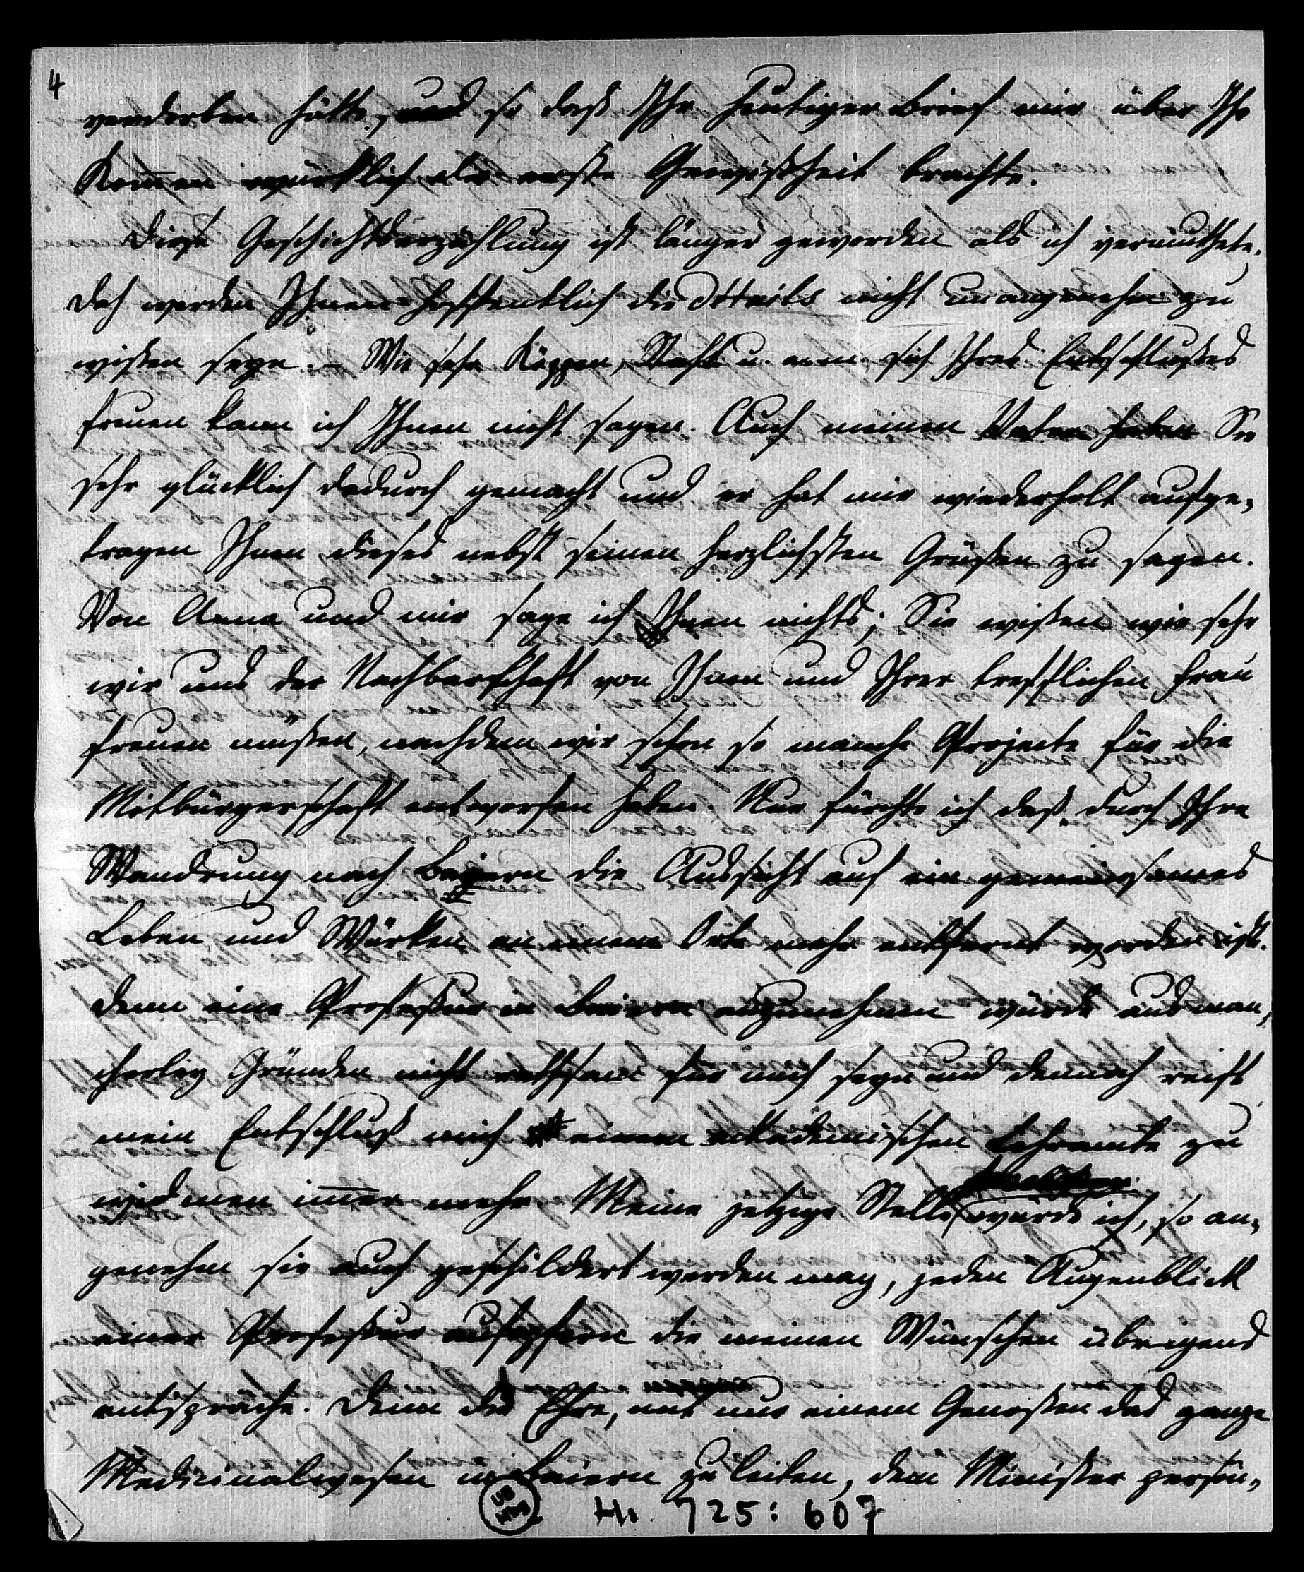 4
verdorben hätte, und so daß Ihr heutiger Brief mir über Ihr
Kom̄en würklich die erste Gewißheit brachte.
Diese Geschichtserzählung ist länger geworden als ich vermuthete,
doch werden Ihnen hoffentlich die Détails nicht unangenehm zu
wißen seyn. – Wie sehr Köppen, u. sich Ihres Entschlußes
freuen kann ich Ihnen nicht sagen. Auch meinen Vater haben Sie
sehr glücklich dadurch gemacht und er hat mir wiederholt aufge-
tragen Ihnen dieses nebst seinen herzlichsten Grüßen zu sagen.
Von Anna und mir sage ich Ihnen nichts; Sie wißen wie sehr
wir uns der Nachbarschaft von Ihnen und Ihrer trefflichen Frau
freuen müßen, nachdem wir schon so manche Projecte für die
Mitbürgerschaft entworfen haben. Nur fürchte ich daß durch Ihre
Wandrung nach Baiern die Aussicht auf ein gemeinsames
Leben und Würken an einem Orte mehr entfernt worden ist.
Denn eine Profeßur in Baiern anzunehmen würde aus man-
cherley Gründen nicht rathsam für mich seyn und dennoch reift
mein Entschluß mich einem akademischen Lehramte zu
widmen im̄er mehr. Meine jetzige Stelle würde ich, so an-
genehm sie auch geschildert werden mag, jeden Augenblick
einer Profeßur aufopfern die meinen Wünschen übrigens
entspräche. Denn die Ehre, mit nur einem Genoßen das ganze
Medicinalwesen in Baiern zu leiten, dem Minister persön-
H. 725: 607